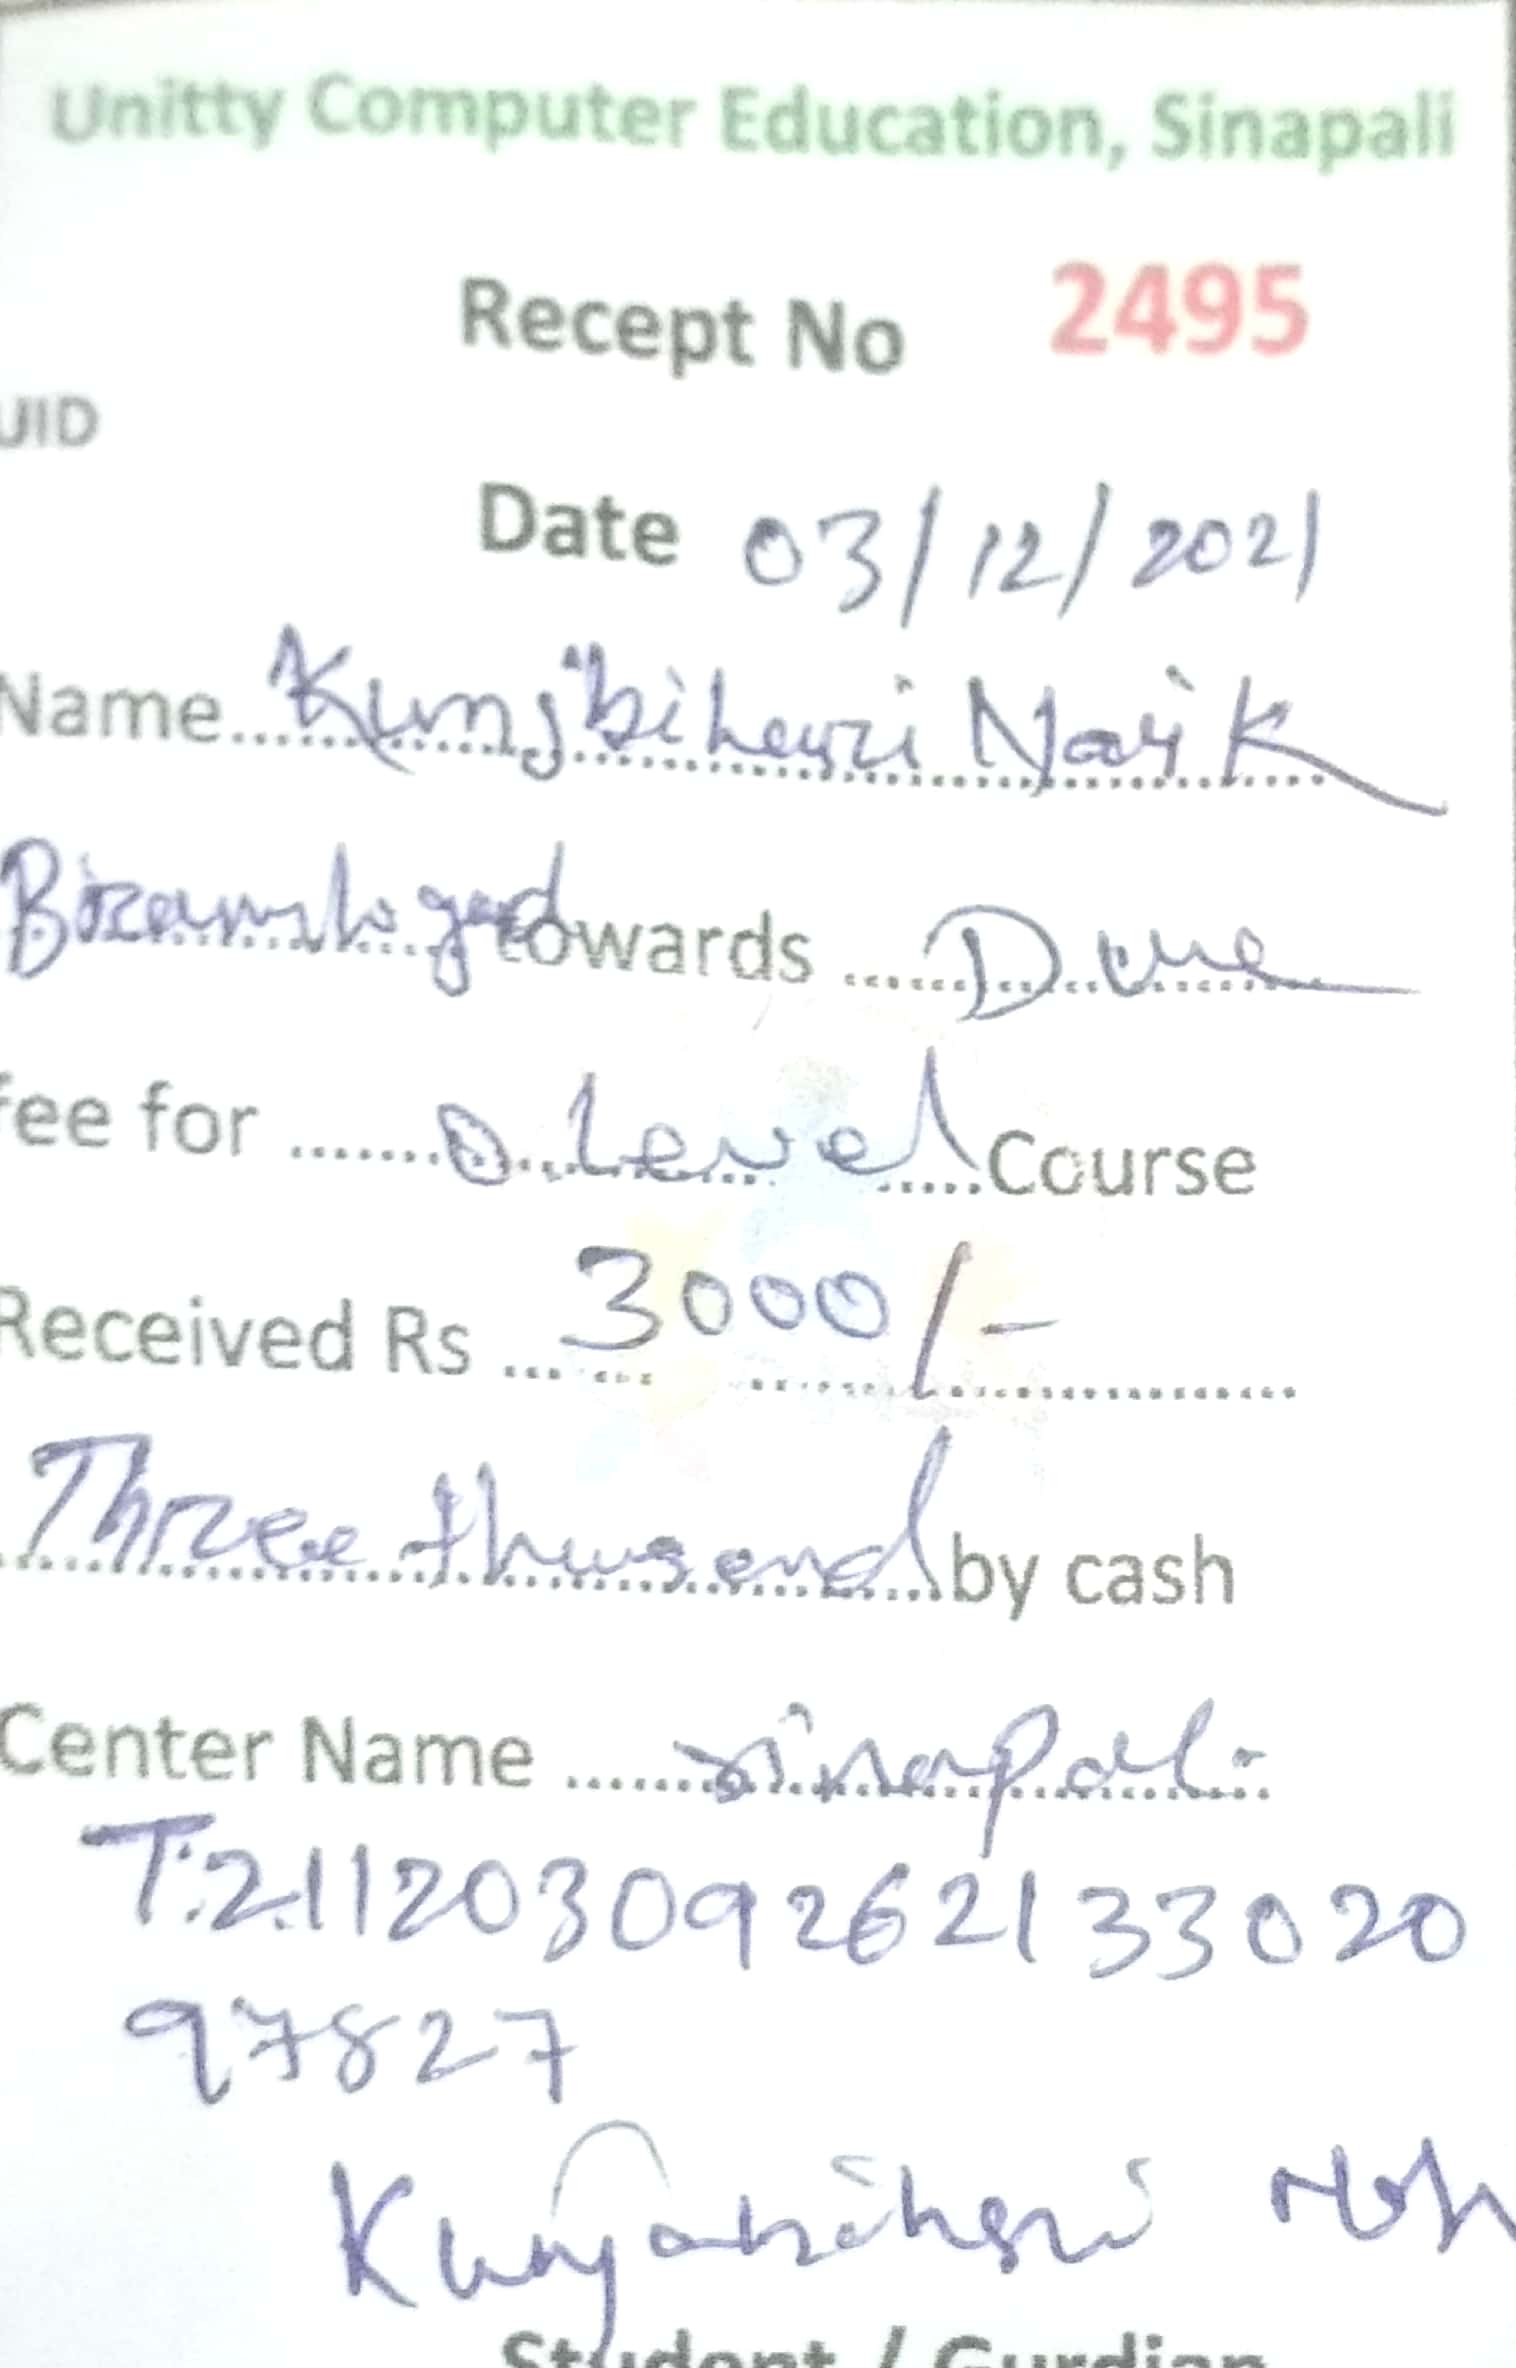 Unitty Computer Education, Sinapali
Recept No 2495
UID
Date 03/12/2021
Name Kunjbihari Naik
towards Due
fee for O Level Course
Received Rs 3000/-
Three thusand by cash
Center Name Sinapali
T21120309262133020
97827
Kunjabihari
Student / Gurdian